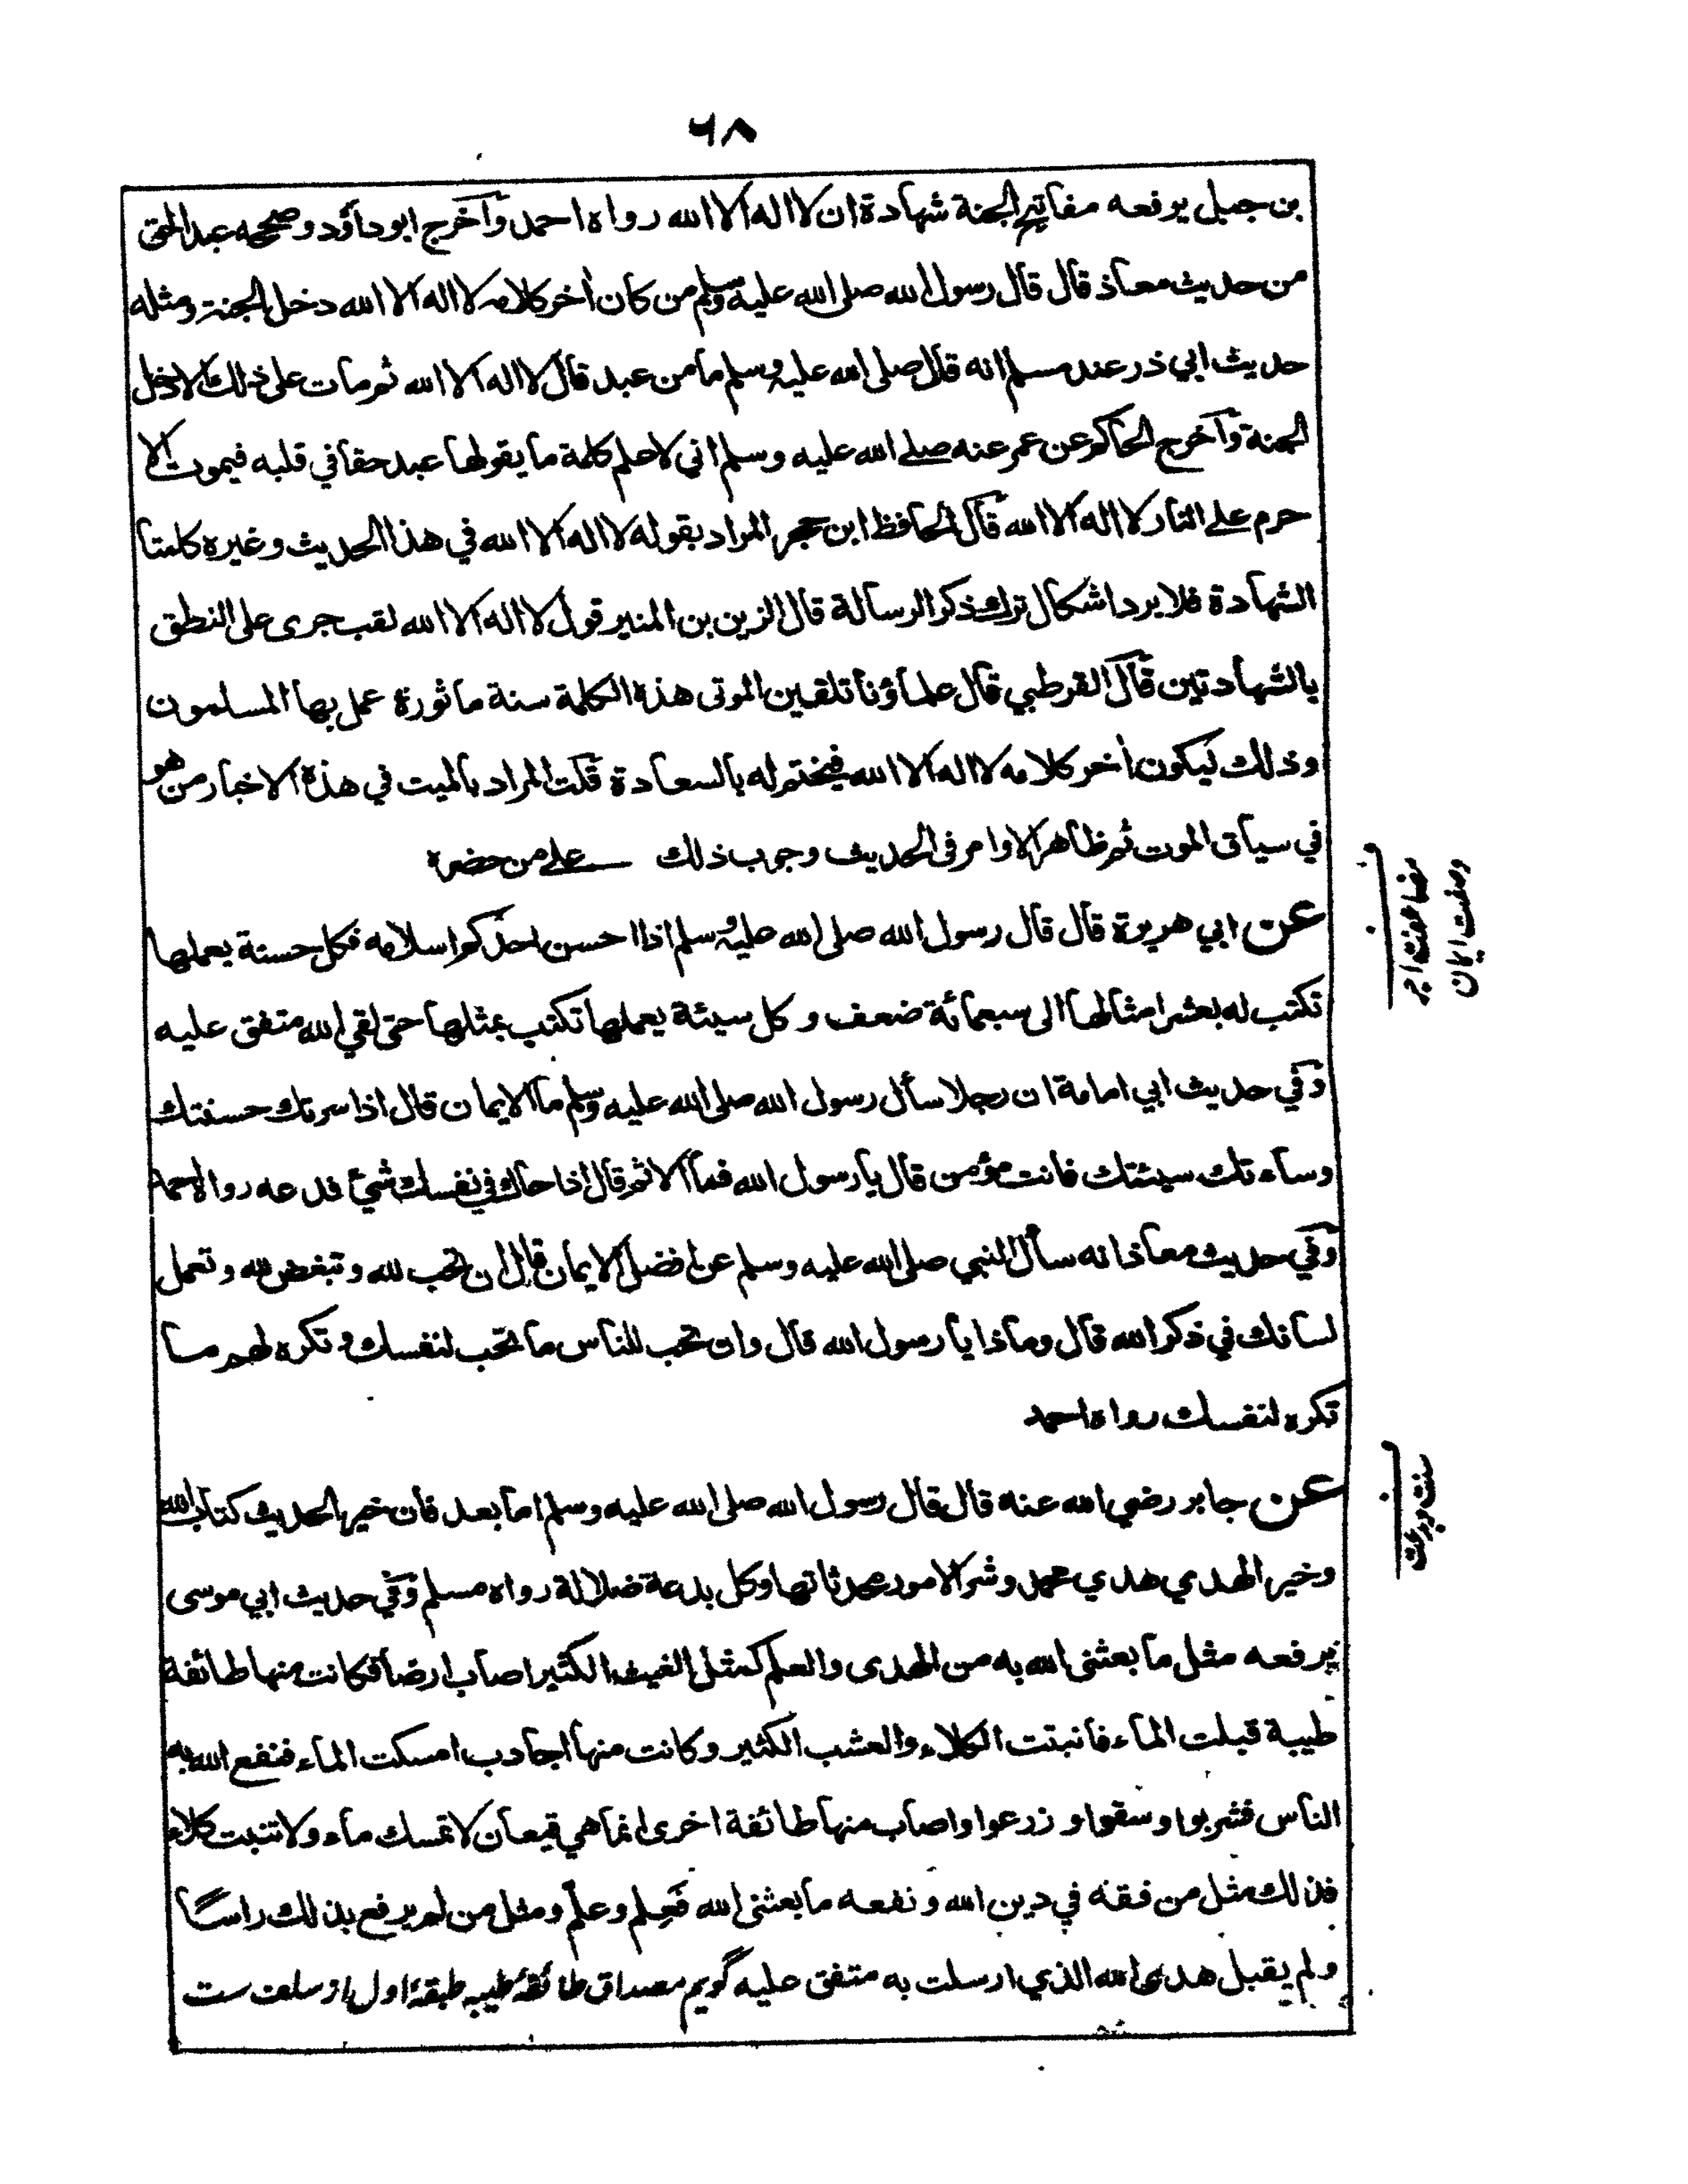 ٦٨
بن جبل يرفعه مفاتيح الجنة شهادة ان لا اله الا الله رواه احمد وآخرج ابو داؤد وصححه عبد الحق
من حديث معاذ قال قال رسول الله صلى الله عليه وسلم من كان اٰخر كلامه لا اله الا الله دخل الجنة ومثله
حديث ابي ذر عند مسلم انه قال صلى الله عليه وسلم ما من عبد قال لا اله الا الله ثم مات على ذلك الا دخل
الجنة وآخرج الحاكم عن عمر عنه صلے الله عليه وسلم اني لاعلم كلمة ما يقولها عبد حقا في قلبه فيموت الا
حرم علے النار لا اله الا الله قال الحافظ ابن حجر المراد بقوله لا اله الا الله في هذا الحديث وغيره كلمتا
الشهادة فلا يرد اشكال ترك ذكر الرسالة قال الزين بن المنير قول لا اله الا الله لقب جرى على النطق
بالشهادتين قال القرطبي قال علماؤنا تلقين الموتى هذه الكلمة سنة ماثورة عمل بها المسلمون
وذلك ليكون اٰخر كلامه لا اله الا الله فيختم له بالسعادة قلت المراد بالميت في هذه الاخبار من هو
في سياق الموت ثم ظاهر الاوامر فى الحديث وجوب ذلك علے من حضره
عن ابي هريرة قال قال رسول الله صلى الله عليه وسلم اذا احسن احدكم اسلامه فكل حسنة يعملها
تكتب له بعشر امثالها الى سبعمائة ضعف وكل سيئة يعملها تكتب بمثلها حتى لقي الله متفق عليه
وفي حديث ابي امامة ان رجلا سأل رسول الله صلى الله عليه وسلم ما الايمان قال اذا سرتك حسنتك
وساءتك سيئتك فانت مؤمن قال يا رسول الله فما الاثم قال اذا حاك في نفسك شيئ فدعه رواه احمد
وفي حديث معاذ انه سأل النبي صلى الله عليه وسلم عن افضل الايمان قال ان تحب لله وتبغض لله وتعمل
لسانك في ذكر الله قال وماذا يا رسول الله قال وان تحب للناس ما تحب لنفسك وتكره لهم ما
تكره لنفسك رواه احمد
عن جابر رضي الله عنه قال قال رسول الله صلى الله عليه وسلم اما بعد فان خير الحديث كتاب الله
وخير الهدي هدي محمد وشر الامور محدثاتها وكل بدعة ضلالة رواه مسلم وفي حديث ابي موسى
يرفعه مثل ما بعثنى الله به من الهدى والعلم كمثل الغيث الكثير اصاب ارضا فكانت منها طائفة
طيبة قبلت الماء فانبتت الكلاء والعشب الكثير وكانت منها اجادب امسكت الماء فنفع الله به
الناس فشربوا وسقوا وزرعوا واصاب منها طائفة اخرى انما هي قيعان لا تمسك ماء ولا تنبت كلاء
فذلك مثل من فقه في دين الله ونفعه ما بعثنى الله فَعِلم وعلّم ومثل من لم يرفع بذلك راسًا
ولم يقبل هدى الله الذي ارسلت به متفق عليه گويم مصداق طائفۂ طيبه طبقۂ اول از سلف ست
مضاعفت اجر
وصفت ايمان
سنت وبدعت